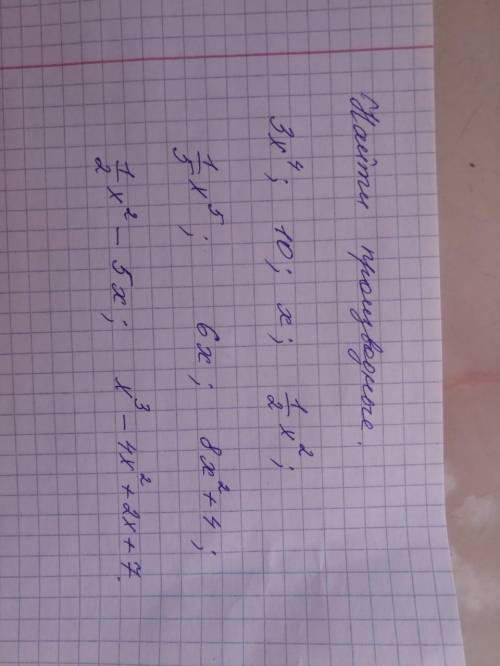 Найти производные.
3x⁴; 10; x; 1/2 x²;
1/5 x⁵; 6x; 8x² + 4;
1/2 x² - 5x; x³ - 4x² + 2x + 7.